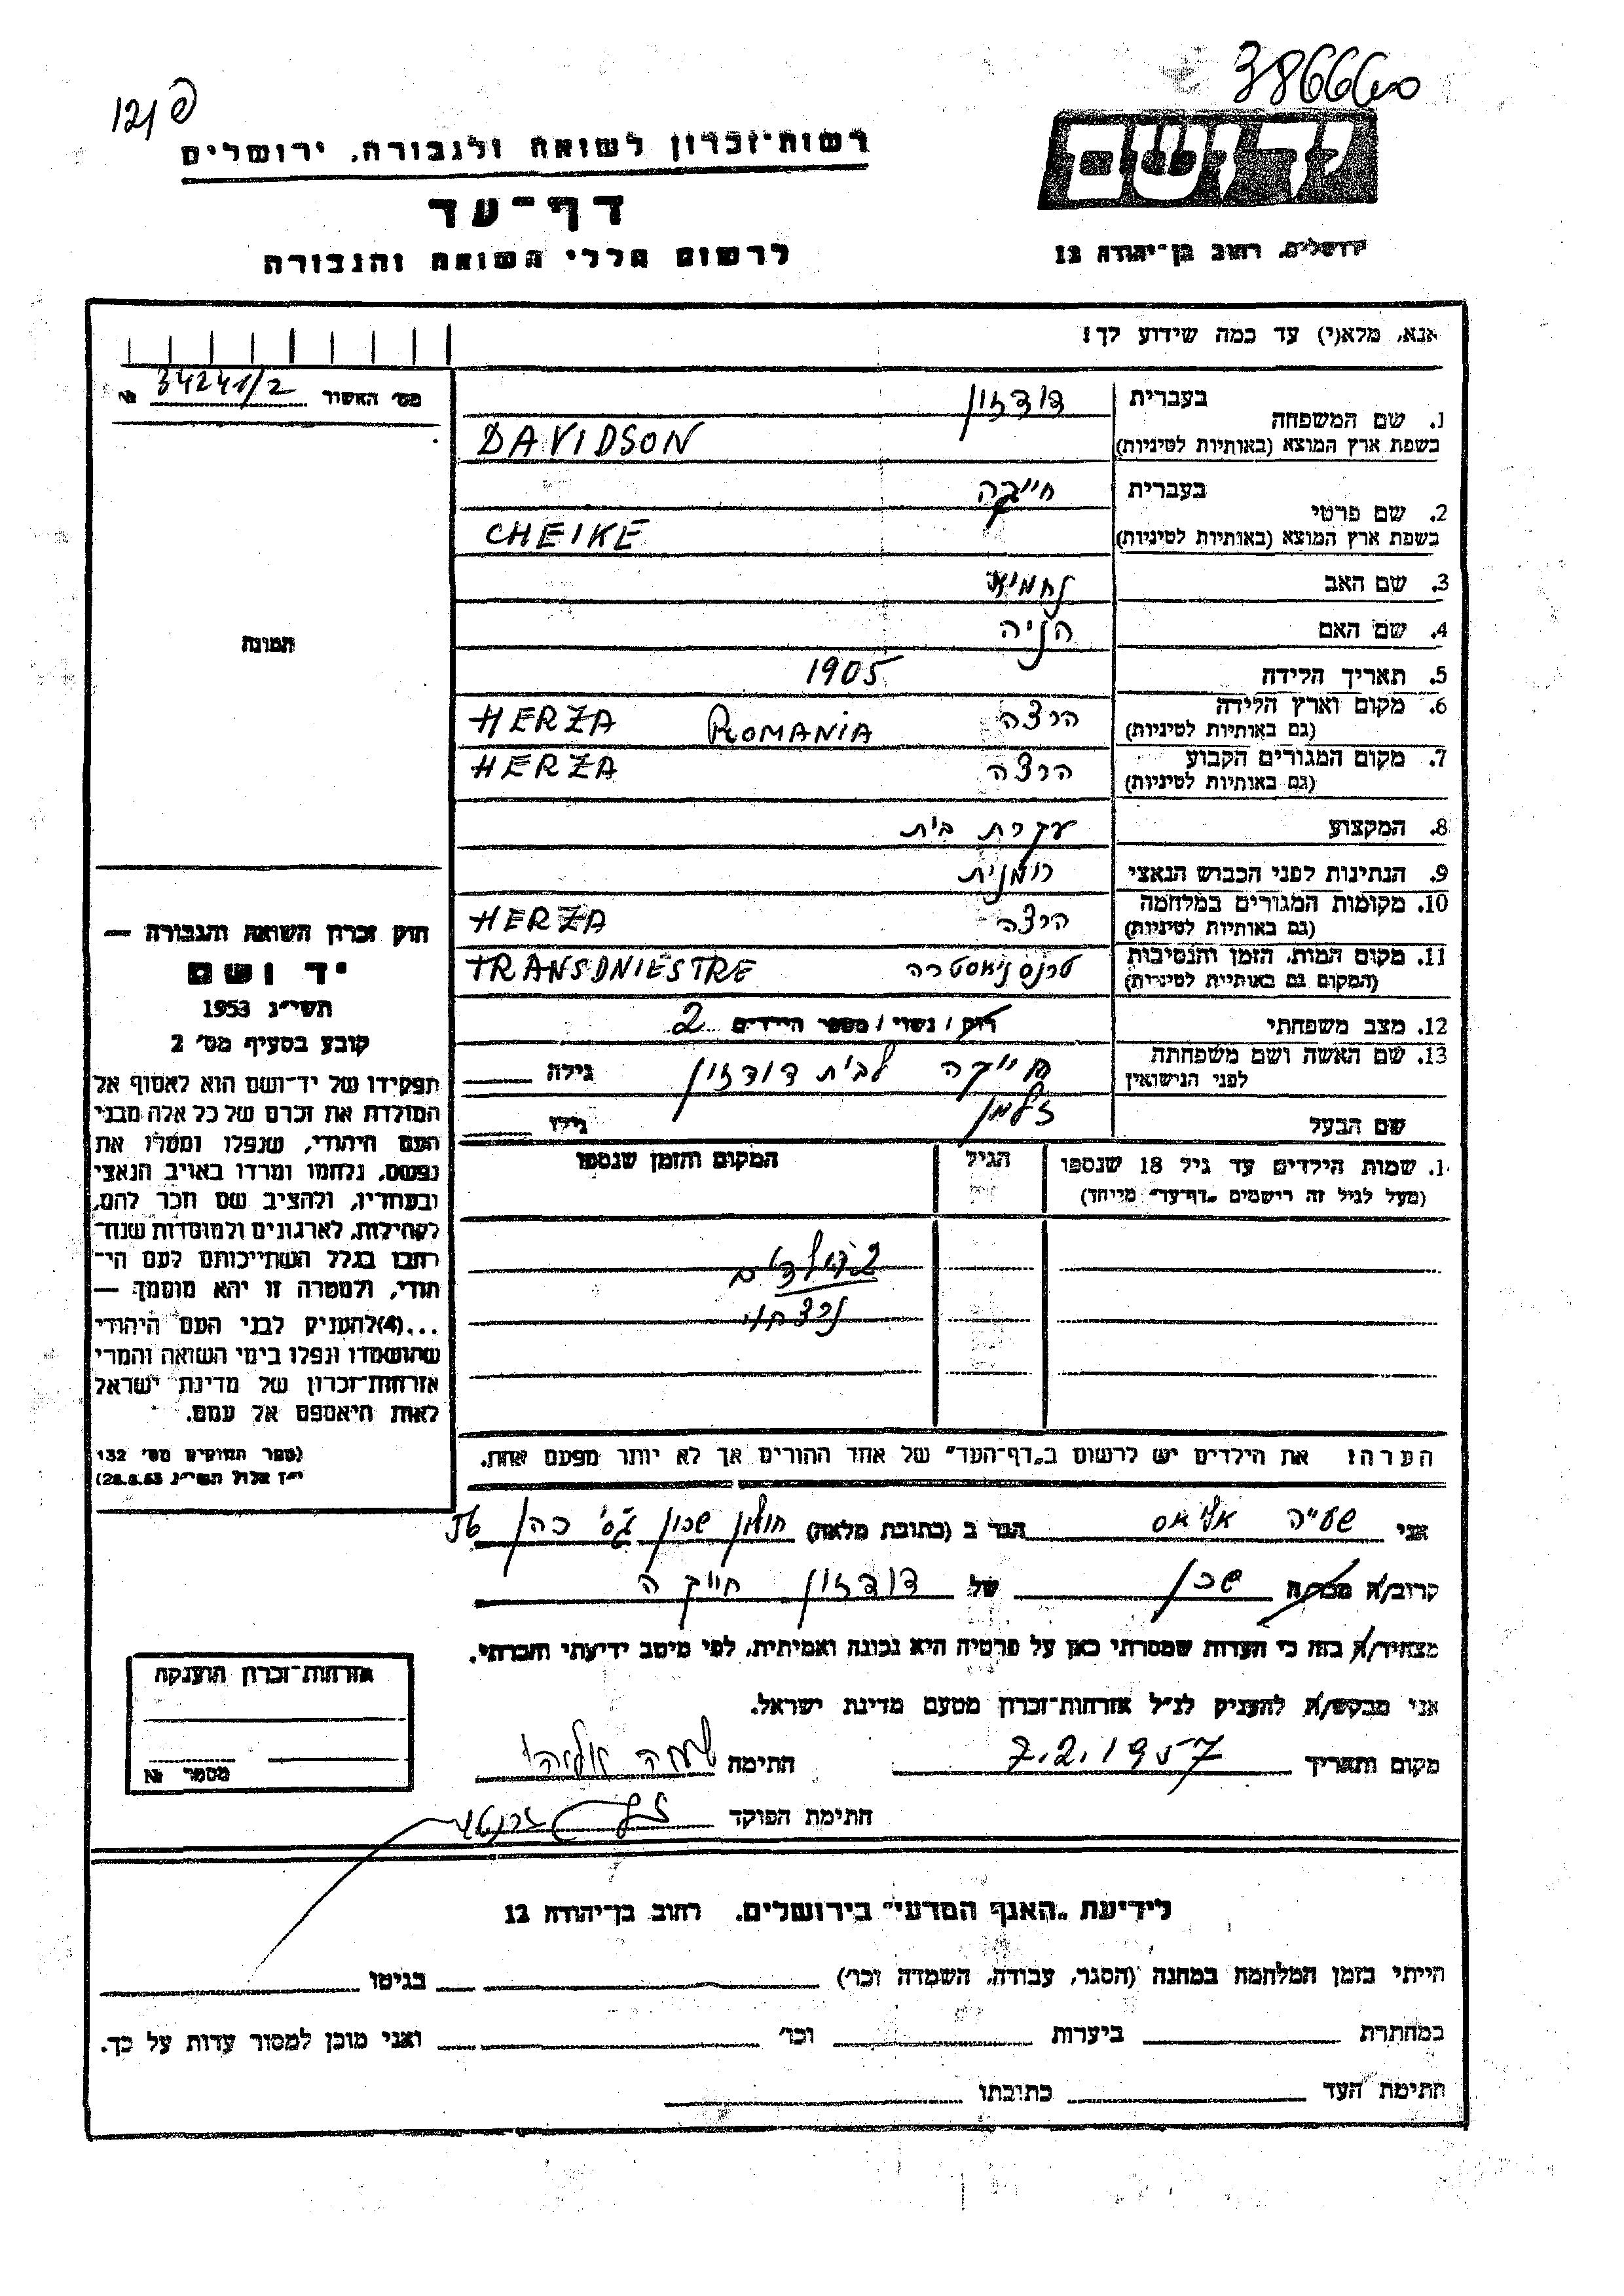 386660
פ 121
יד ושם
ירושלים, רחוב בן־יהודה 12
רשות־זכרון לשואה ולגבורה, ירושלים
דף־עד
לרשום חללי השואה והגבורה
אנא, מלא(י) עד כמה שידוע לך!
מס' האשור 34241/2 №
1. שם המשפחה בעברית דודזון
בשפת ארץ המוצא (באותיות לטיניות) DAVIDSON
2. שם פרטי בעברית חייקה
בשפת ארץ המוצא (באותיות לטיניות) CHEIKE
3. שם האב
4. שם האם הניה
5. תאריך הלידה 1905
6. מקום וארץ הלידה הרצה ROMANIA HERZA
(גם באותיות לטיניות)
7. מקום המגורים הקבוע הרצה HERZA
(גם באותיות לטיניות)
8. המקצוע עקרת בית
9. הנתינות לפני הכבוש הנאצי רומנית
10. מקומות המגורים במלחמה הרצה HERZA
(גם באותיות לטיניות)
11. מקום המות, הזמן והנסיבות טרנסניסטרה TRANSDNIESTRE
(המקום גם באותיות לטיניות)
12. מצב משפחתי רוק / נשוי / מספר הילדים 2
13. שם האשה ושם משפחתה חייקה לבית דודזון גילה
לפני הנישואין
שם הבעל זלמן גילו
1. שמות הילדים עד גיל 18 שנספו הגיל המקום והזמן שנספו
(מעל לגיל זה רישמים "דף־עד" מייוחד)
2 הילדים
נרצחו
הערה: את הילדים יש לרשום ב"דף־העד" של אחד ההורים אך לא יותר מפעם אחת.
תמונה
חוק זכרון השואה והגבורה —
יד ושם
תשי"ג 1953
קובע בסעיף מס' 2
תפקידו של יד־ושם הוא לאסוף אל
המולדת את זכרם של כל אלה מבני
העם היהודי, שנפלו ומסרו את
נפשם, נלחמו ומרדו באויב הנאצי
ובעוזריו, ולהציב שם וזכר להם,
לקהילות, לארגונים ולמוסדות שנח־
רבו בגלל השתייכותם לעם הי־
הודי, ולמטרה זו יהא מוסמך —
...(4)להעניק לבני העם היהודי
שהושמדו ונפלו בימי השואה והמרי
אזרחות־זכרון של מדינת ישראל
לאות היאספם אל עמם.
(ספר החוקים מס' 132
י"ז אלול תשי"ג 28.8.53)
אני שעיה אליאס הגר ב (כתובת מלאה) חולון שכון ג'סי כהן
קרוב/ה מכר/ה שכן של דודזון חייקה
מצהיר/ה בזה כי העדות שמסרתי כאן על פרטיה היא נכונה ואמיתית, לפי מיטב ידיעתי והכרתי.
אני מבקש/ת להעניק לנ"ל אזרחות־זכרון מטעם מדינת ישראל.
מקום ותאריך 7.2.1957 חתימה
חתימת הפוקד
אזרחות־זכרון הוענקה
מספר №
לידיעת "האגף המדעי" בירושלים, רחוב בן־יהודה 12
הייתי בזמן המלחמה במחנה (הסגר, עבודה, השמדה וכו') בגיטו
במחתרת ביערות וכו' ואני מוכן למסור עדות על כך.
חתימת העד כתובתו